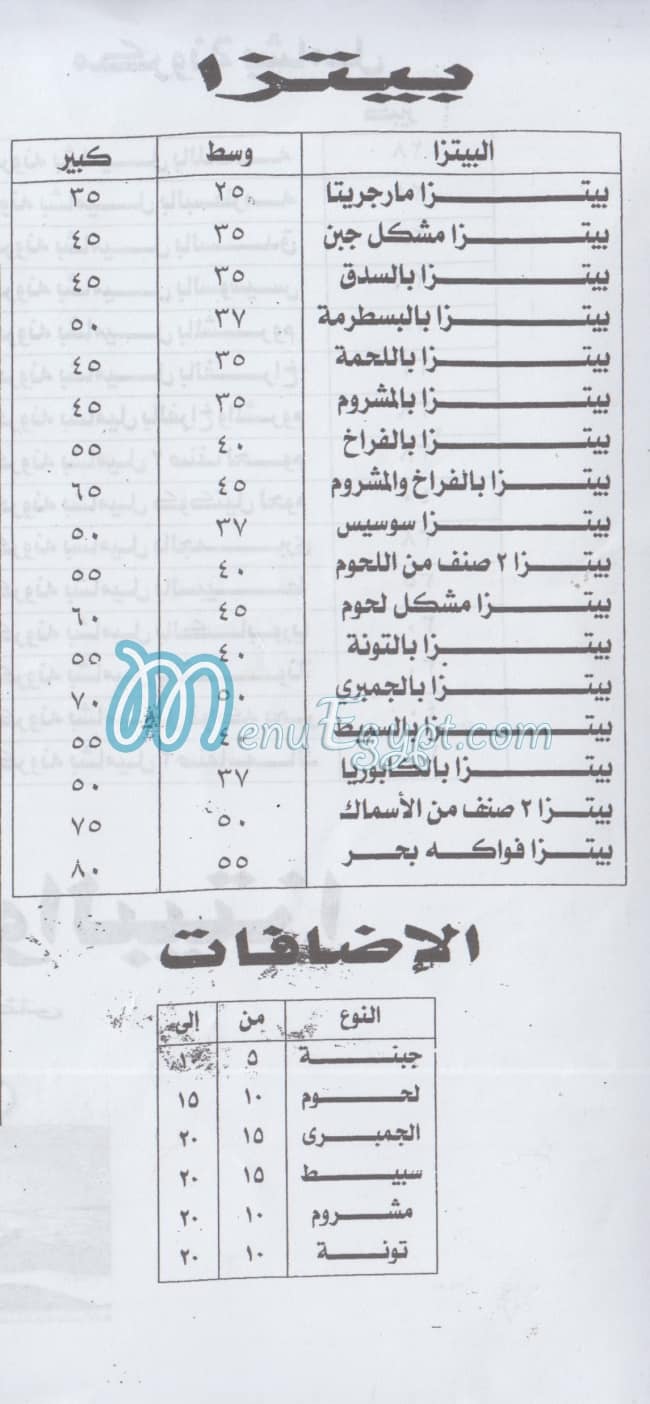 بيتزا
البيتزا وسط كبير
بيتزا مارجريتا ٢٥ ٣٥
بيتزا مشكل جبن ٣٥ ٤٥
بيتزا بالسدق ٣٥ ٤٥
بيتزا بالبسطرمة ٣٧ ٥٠
بيتزا باللحمة ٣٥ ٤٥
بيتزا بالمشروم ٣٥ ٤٥
بيتزا بالفراخ ٤٠ ٥٥
بيتزا بالفراخ والمشروم ٤٥ ٦٥
بيتزا سوسيس ٣٧ ٥٠
بيتزا ٢ صنف من اللحوم ٤٠ ٥٥
بيتزا مشكل لحوم ٤٥ ٦٠
بيتزا بالتونة ٤٠ ٥٥
بيتزا بالجمبرى ٥٠ ٧٠
بيتزا بالسبيط ٤ ٥٥
بيتزا بالكابوريا ٣٧ ٥٠
بيتزا ٢ صنف من الأسماك ٥٠ ٧٥
بيتزا فواكه بحر ٥٥ ٨٠
MenuEgypt.com
الإضافات
النوع من إلى
جبنة ٥
لحوم ١٠ ١٥
الجمبرى ١٥ ٢٠
سبيط ١٥ ٢٠
مشروم ١٠ ٢٠
تونة ١٠ ٢٠